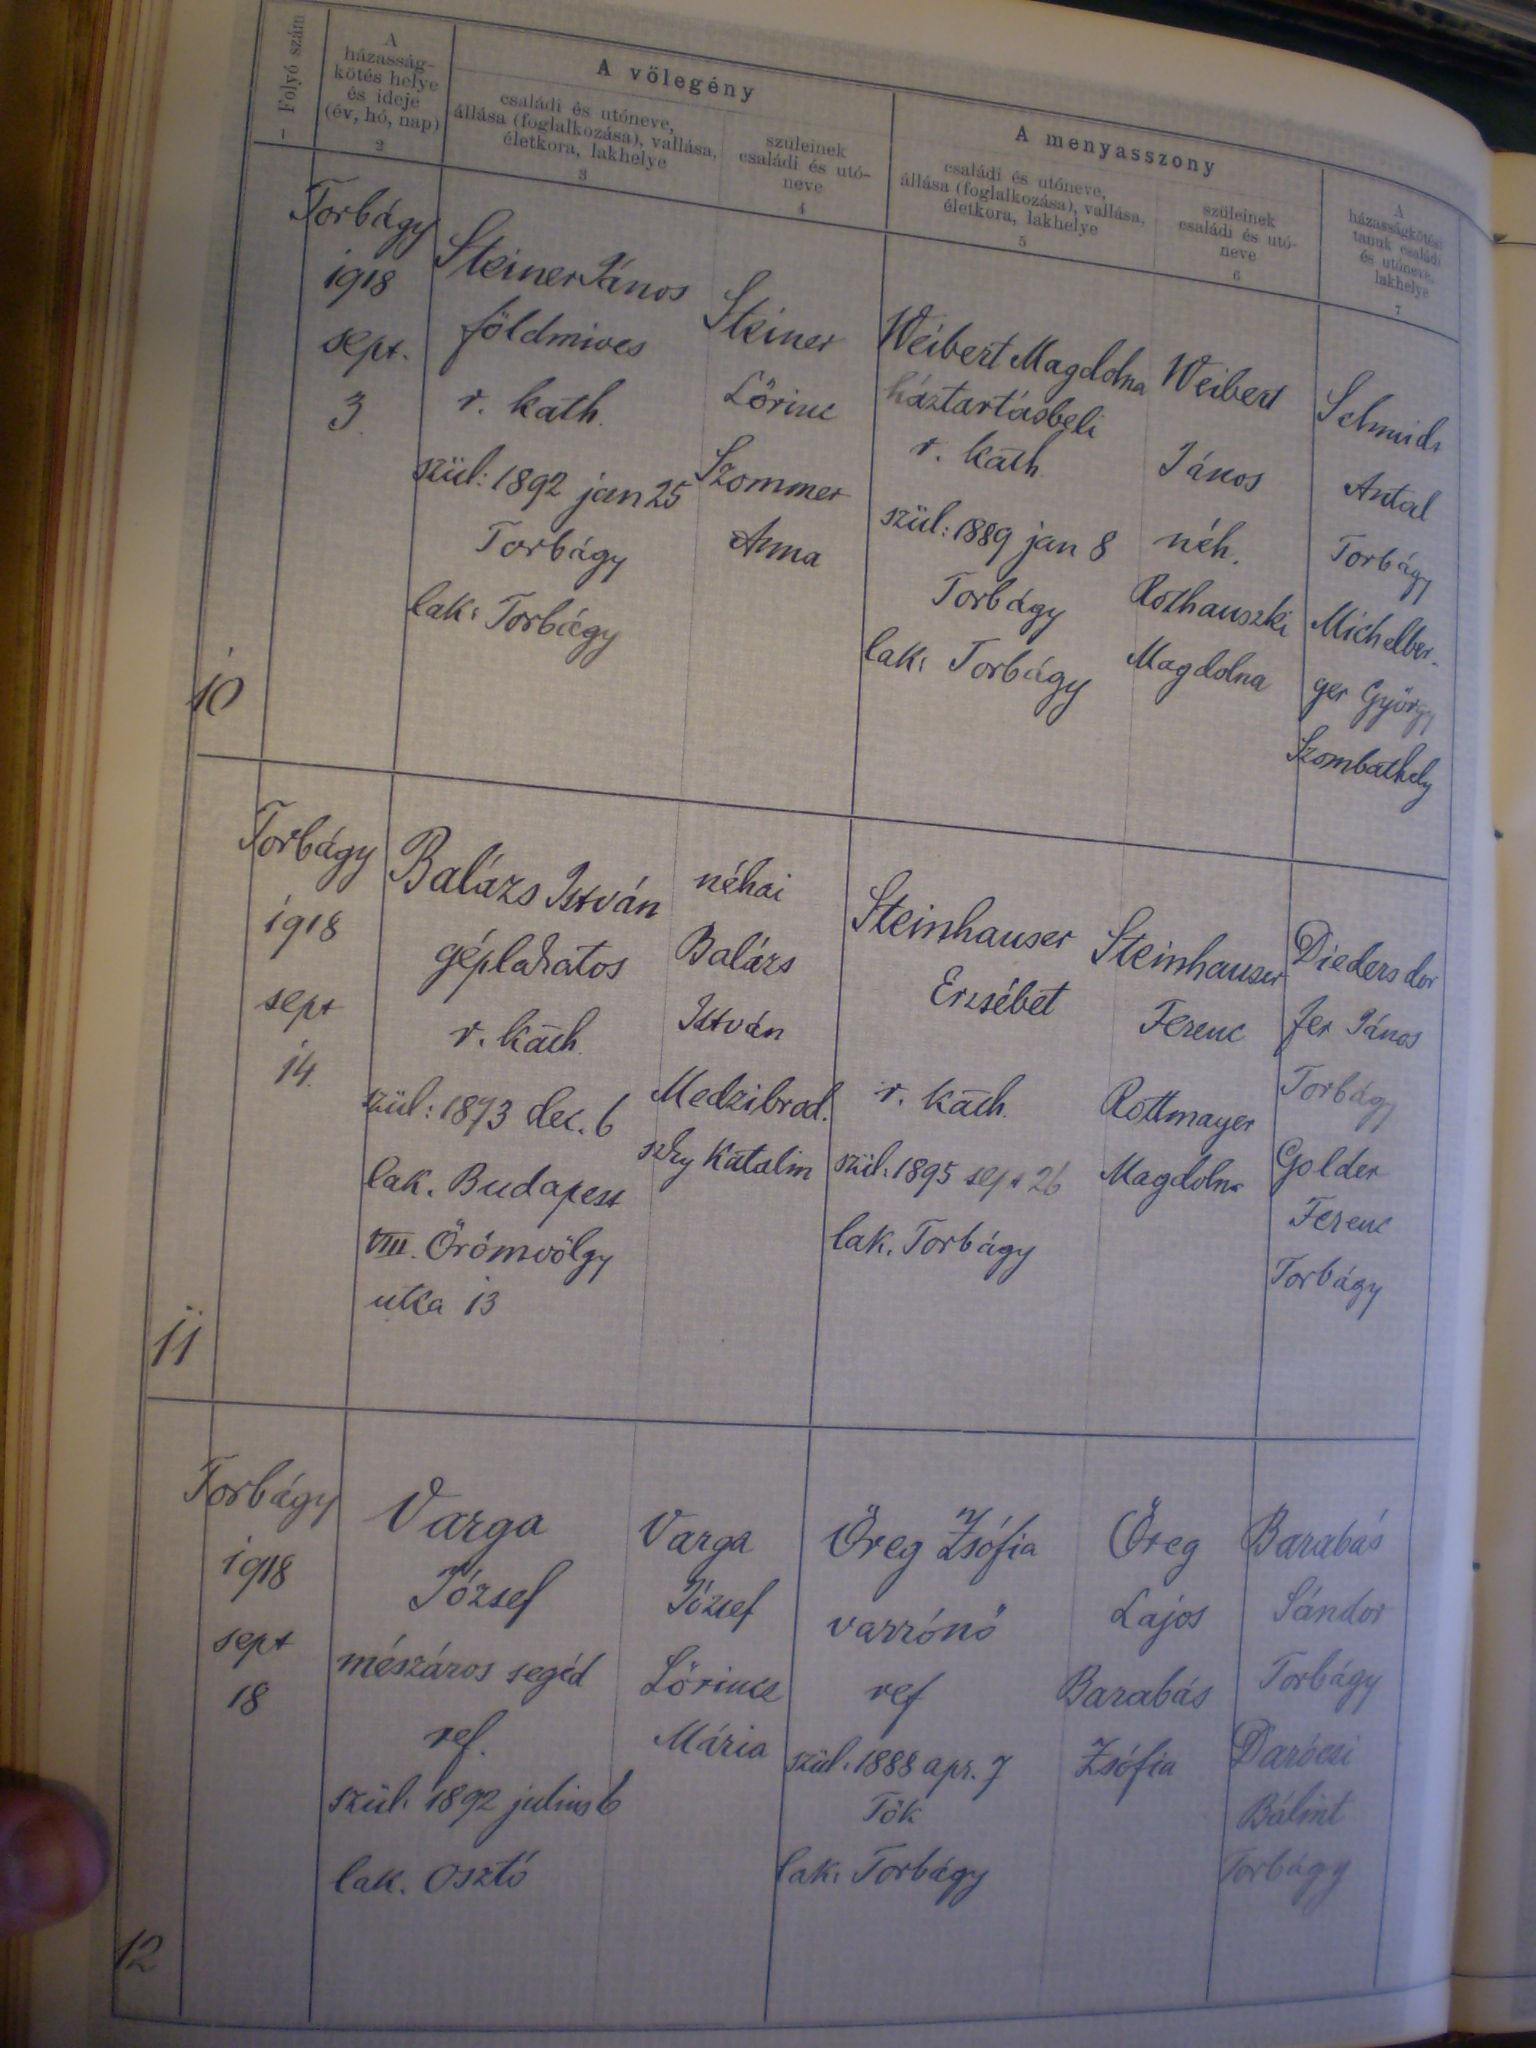 Folyó szám
1
A
házasság-
kötés helye
és ideje
(év, hó, nap)
2
A vőlegény
családi és utóneve,
állása (foglalkozása), vallása,
életkora, lakhelye
3
szüleinek
családi és utó-
neve
4
A menyasszony
családi és utóneve,
állása (foglalkozása), vallása,
életkora, lakhelye
5
szüleinek
családi és utó-
neve
6
A
házasságkötési
tanuk családi
és utóneve,
lakhelye
7
10
Torbágy
1918
sept.
3
Steiner János
földmives
r. kath.
szül: 1892 jan 25
Torbágy
lak: Torbágy
Steiner
Lőrinc
Szommer
Anna
Weibert Magdolna
háztartásbeli
r. kath.
szül: 1889 jan 8
Torbágy
lak: Torbágy
Weibert
János
néh.
Rothauszki
Magdolna
Schmidt
Antal
Torbágy
Michelber-
ger György
Szombathely
11
Torbágy
1918
sept
14.
Balázs István
géplakatos
r. kath.
szül: 1893 dec. 6
lak. Budapest
VIII. Örömvölgy
utca 13
néhai
Balázs
István
Medzibrod.
szky Katalin
Steinhauser
Erzsébet
r. kath.
szül: 1895 sept 26
lak. Torbágy
Steinhauser
Ferenc
Rottmayer
Magdolna
Diedersdor
fer János
Torbágy
Golder
Ferenc
Torbágy
12
Torbágy
1918
sept
18
Varga
József
mészáros segéd
ref.
szül. 1892 julius 6
lak. Osztó
Varga
József
Lőrincz
Mária
Öreg Zsófia
varrónő
ref
szül. 1888 apr. 7
Tök
lak: Torbágy
Öreg
Lajos
Barabás
Zsófia
Barabás
Sándor
Torbágy
Daróczi
Bálint
Torbágy